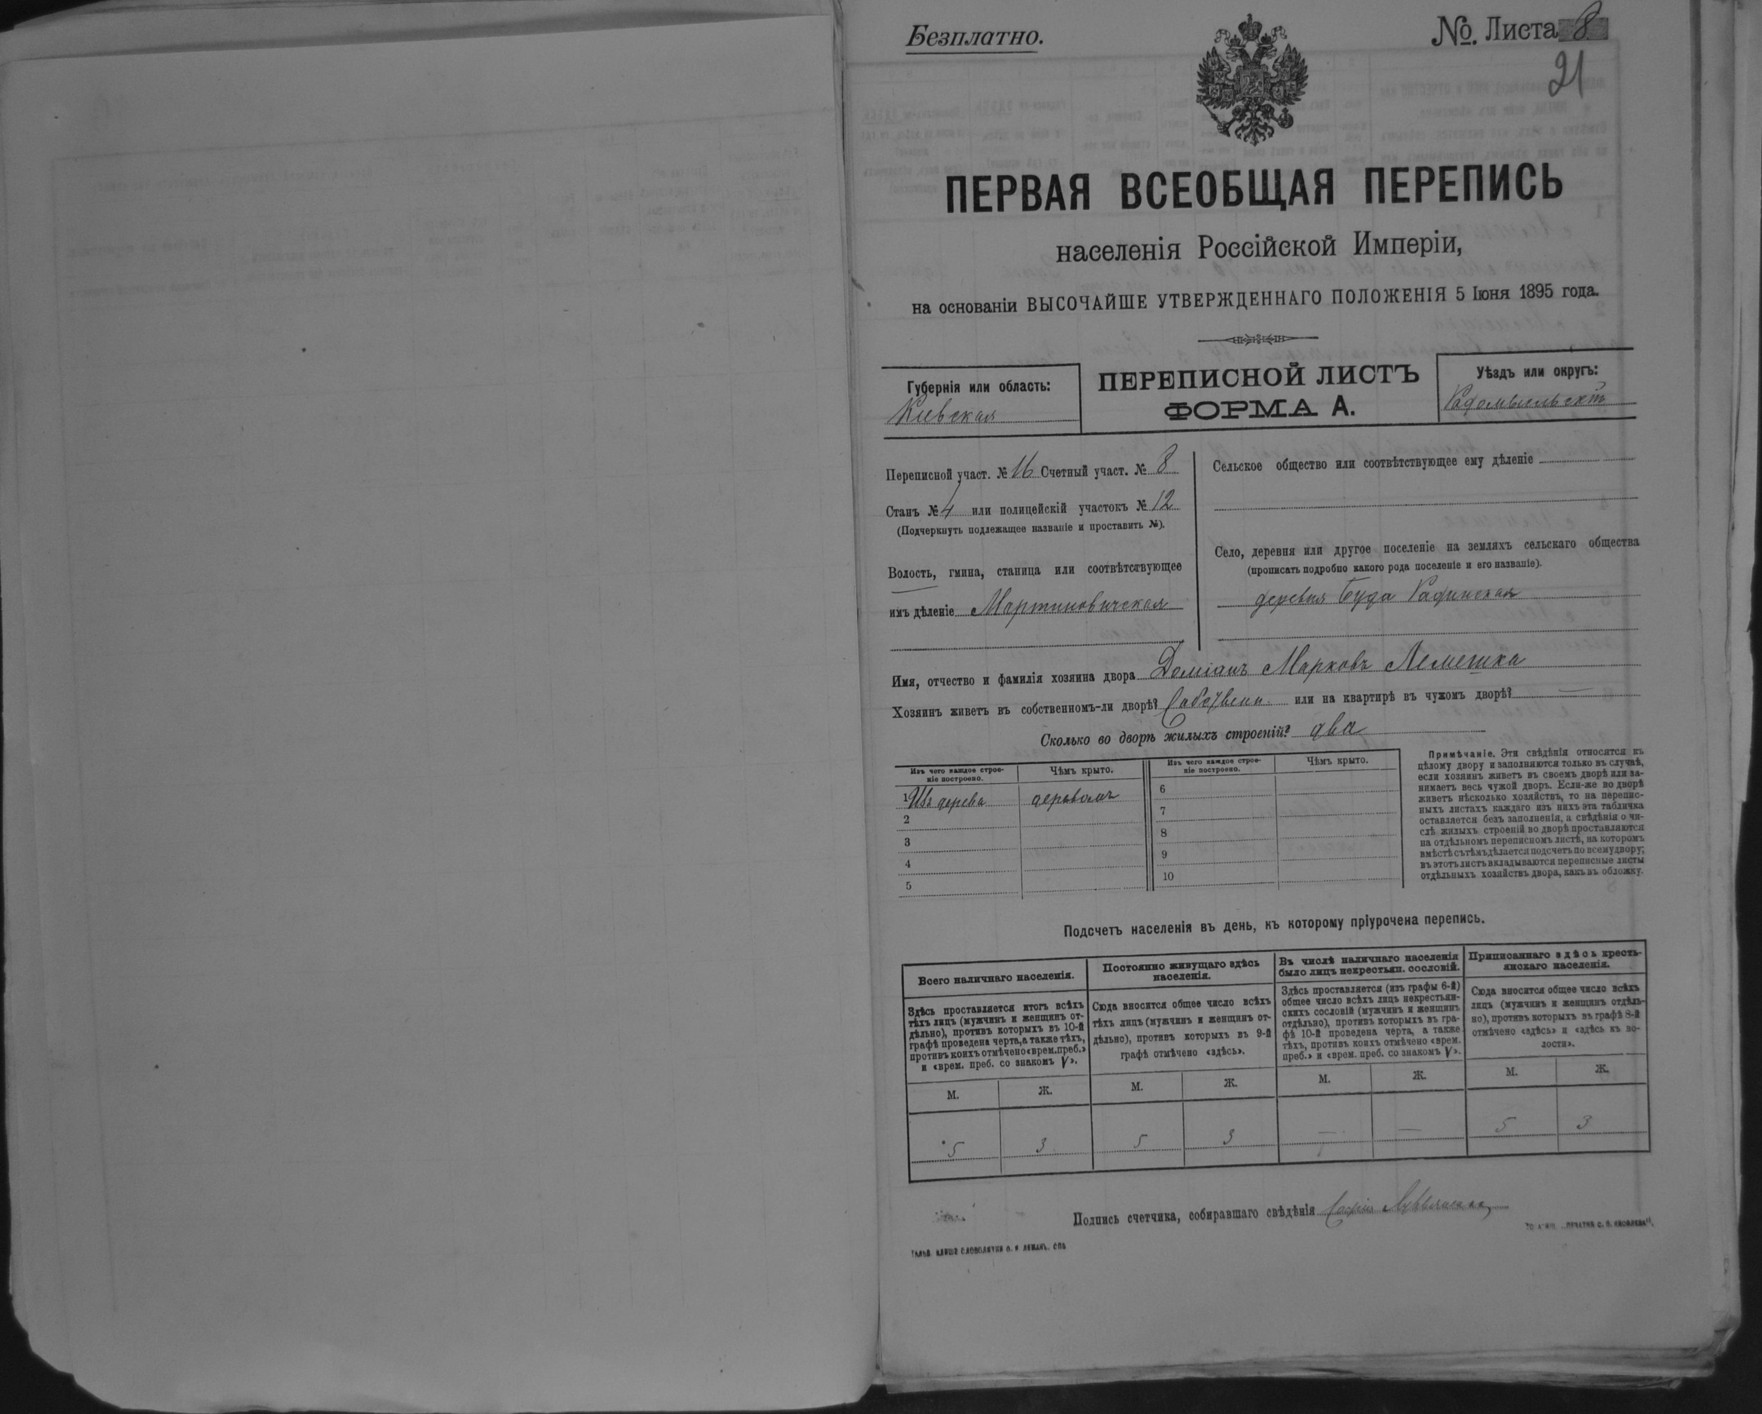 Безплатно.
№. Листа 8
21
ПЕРВАЯ ВСЕОБЩАЯ ПЕРЕПИСЬ
населенія Россійской Имперіи,
на основаніи ВЫСОЧАЙШЕ УТВЕРЖДЕННАГО ПОЛОЖЕНІЯ 5 Іюня 1895 года.
Губернія или область:
Кіевская
ПЕРЕПИСНОЙ ЛИСТЪ
ФОРМА А.
Уѣздъ или округъ:
Радомысльскій
Переписной участ. № 16 Счетный участ. № 8
Станъ № 4 или полицейскій участокъ № 12
(Подчеркнуть подлежащее названіе и проставить №).
Волость, гмина, станица или соотвѣтствующее
имъ дѣленіе Мартиновичская
Сельское общество или соотвѣтствующее ему дѣленіе
Село, деревня или другое поселеніе на земляхъ сельскаго общества
(прописать подробно какого рода поселеніе и его названіе).
деревня Буда Радинская
Имя, отчество и фамилія хозяина двора Доміанъ Марковъ Лемешка
Хозяинъ живетъ въ собственномъ-ли дворѣ? Собствен. или на квартирѣ въ чужомъ дворѣ? —
Сколько во дворѣ жилыхъ строеній? два
Изъ чего каждое строе-
ніе построено.
Чѣмъ крыто.
Изъ чего каждое строе-
ніе построено.
Чѣмъ крыто.
1 Изъ дерева деревомъ
2
3
4
5
6
7
8
9
10
Примѣчаніе. Эти свѣдѣнія относятся къ
цѣлому двору и заполняются только въ случаѣ,
если хозяинъ живетъ въ своемъ дворѣ или за-
нимаетъ весь чужой дворъ. Если-же во дворѣ
живетъ нѣсколько хозяйствъ, то на перепис-
ныхъ листахъ каждаго изъ нихъ эта табличка
оставляется безъ заполненія, а свѣдѣнія о чи-
слѣ жилыхъ строеній во дворѣ проставляются
на отдѣльномъ переписномъ листѣ, на которомъ
вмѣстѣ съ тѣмъ дѣлается подсчетъ по всему двору;
въ этотъ листъ вкладываются переписные листы
отдѣльныхъ хозяйствъ двора, какъ въ обложку.
Подсчетъ населенія въ день, къ которому пріурочена перепись.
Всего наличнаго населенія.
Здѣсь проставляется итогъ всѣхъ
тѣхъ лицъ (мужчинъ и женщинъ от-
дѣльно), противъ которыхъ въ 10-й
графѣ проведена черта, а также тѣхъ,
противъ коихъ отмѣчено «врем. преб.»
и «врем. преб. со знакомъ V».
Постоянно живущаго здѣсь
населенія.
Сюда вносится общее число всѣхъ
тѣхъ лицъ (мужчинъ и женщинъ от-
дѣльно), противъ которыхъ въ 9-й
графѣ отмѣчено «здѣсь».
Въ числѣ наличнаго населенія
было лицъ некрестьян. сословій.
Здѣсь проставляется (изъ графы 6-й)
общее число всѣхъ лицъ некрестьян-
скихъ сословій (мужчинъ и женщинъ
отдѣльно), противъ которыхъ въ гра-
фѣ 10-й проведена черта, а также
тѣхъ, противъ коихъ отмѣчено «врем.
преб.» и «врем. преб. со знакомъ V».
Приписаннаго здѣсь кресть-
янскаго населенія.
Сюда вносится общее число всѣхъ
лицъ (мужчинъ и женщинъ отдѣль-
но), противъ которыхъ въ графѣ 8-й
отмѣчено «здѣсь» и «здѣсь въ во-
лости».
М. Ж. М. Ж. М. Ж. М. Ж.
5 3 5 3 — — 5 3
Подпись счетчика, собиравшаго свѣдѣнія